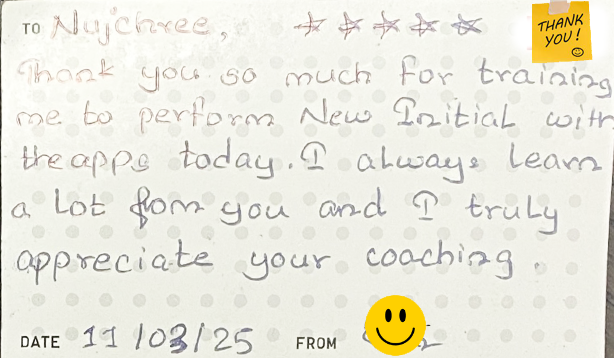 TO Nujchree, ☆ ☆ ☆ ☆ ☆
THANK
YOU!
Thank you so much for training
me to perform New Initial with
the apps today. I always learn
a lot from you and I truly
appreciate your coaching.
DATE 11/03/25 FROM